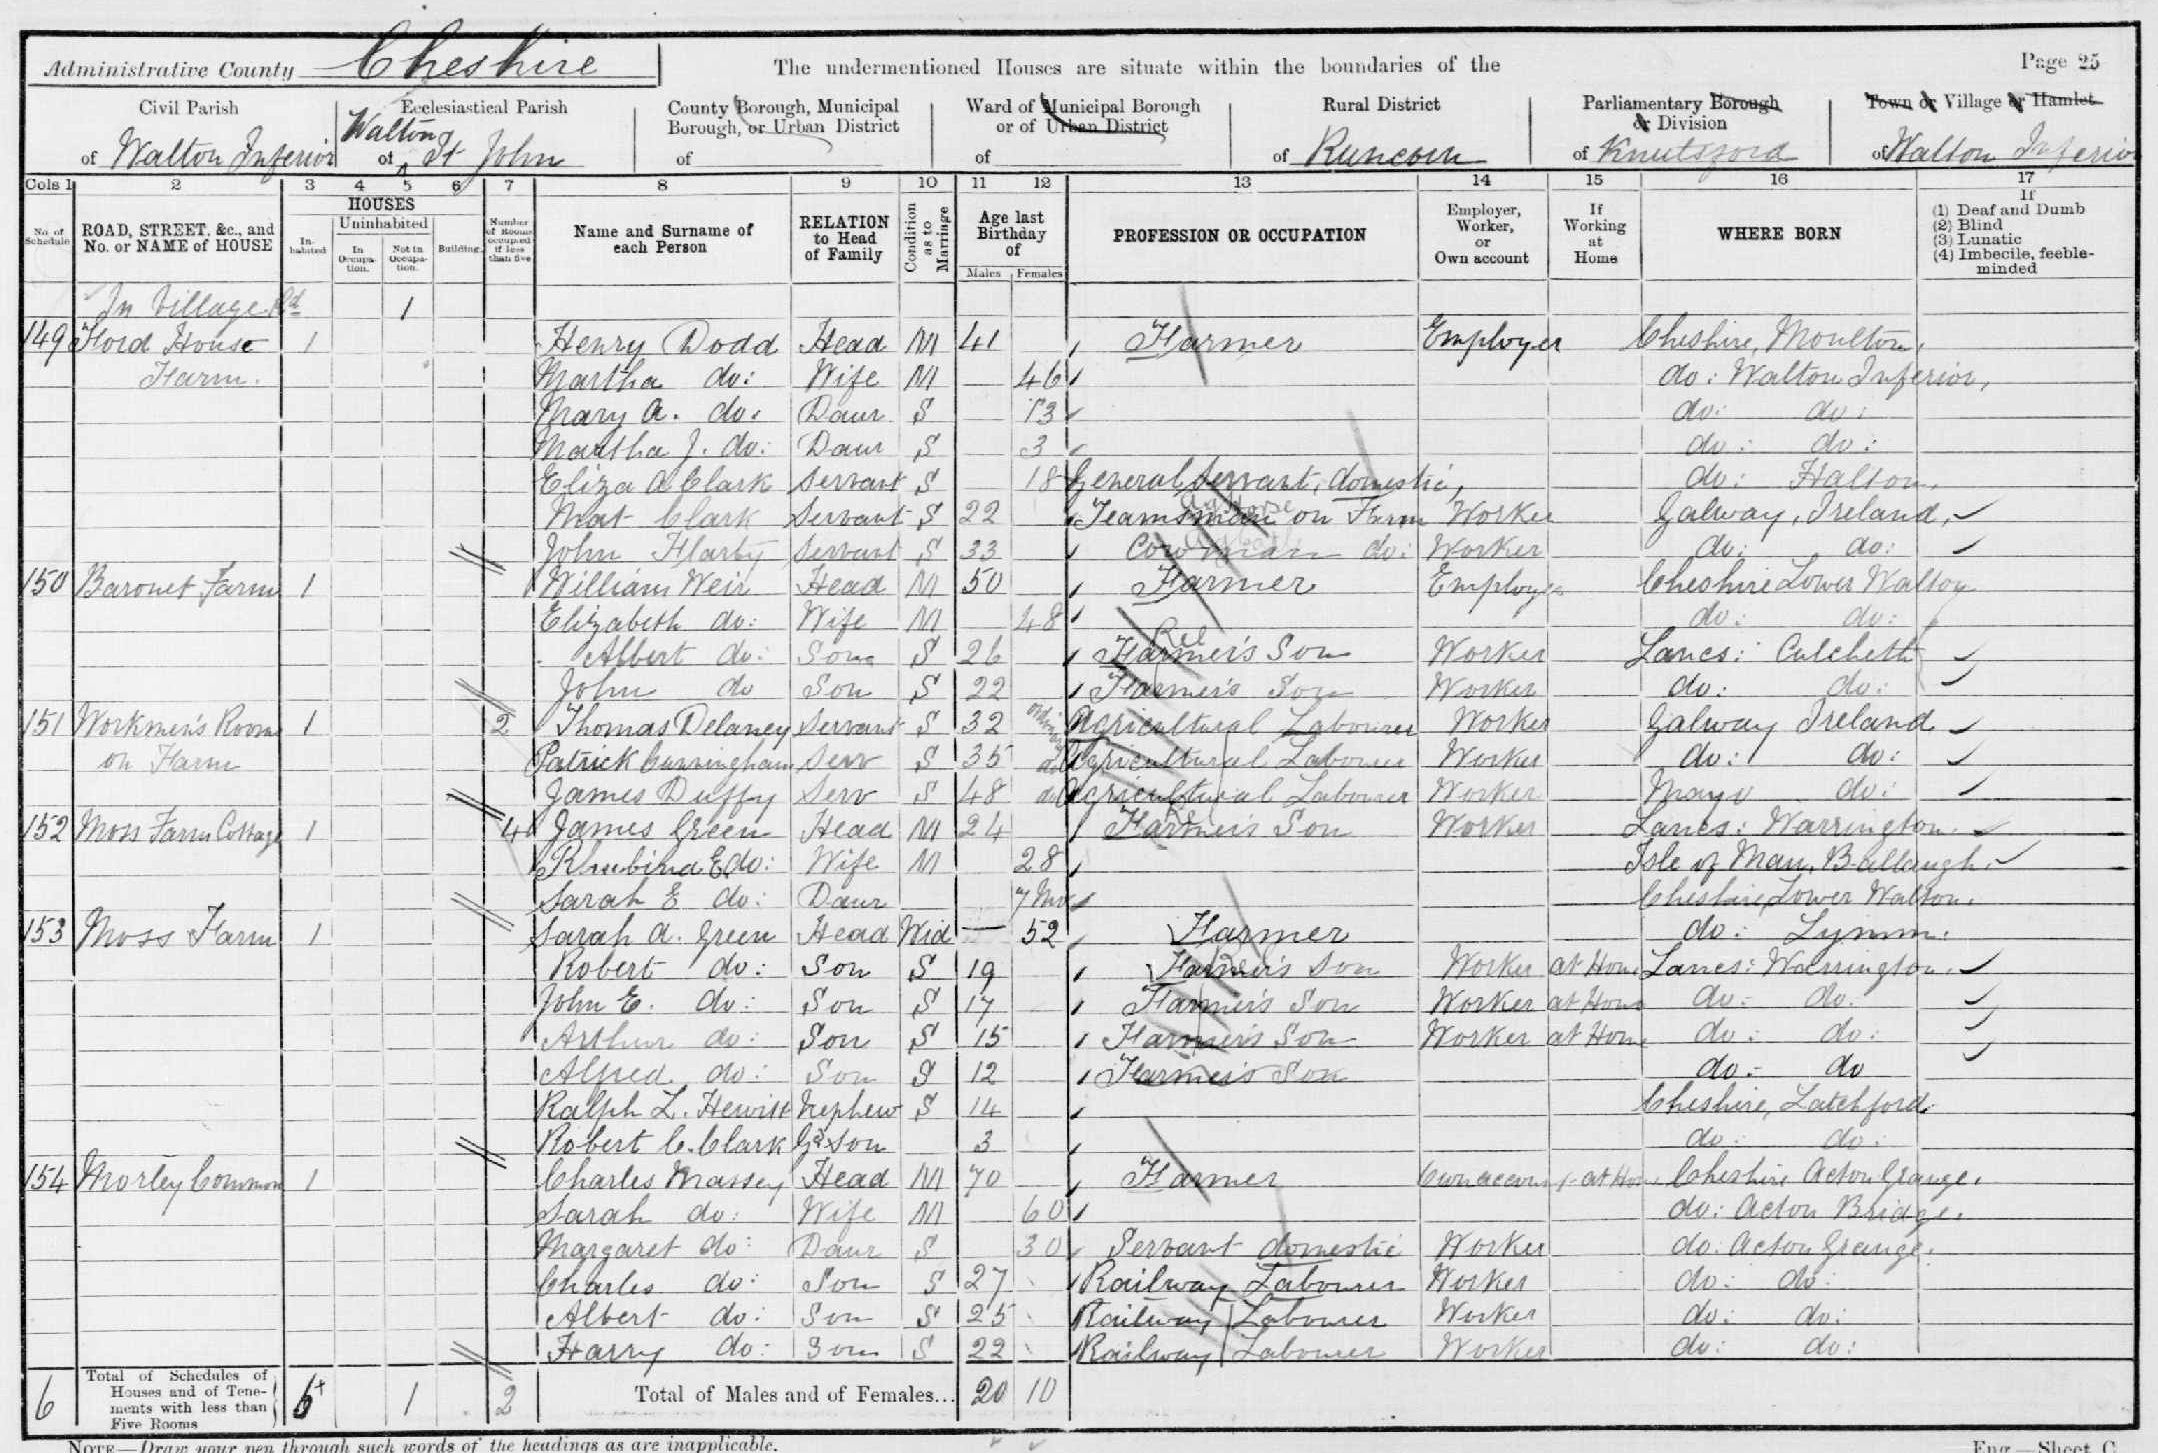 Administrative County Cheshire The undermentioned Houses are situate within the boundaries of the Page 25
Civil Parish of Walton Inferior
Ecclesiastical Parish of Walton St John
County Borough, Municipal Borough, or Urban District of
Ward of Municipal Borough or of Urban District of
Rural District of Runcorn
Parliamentary Borough or Division of Knutsford
Town or Village or Hamlet of Walton Inferior
Cols 1 2 3 4 5 6 7 8 9 10 11 12 13 14 15 16 17
No. of Schedule
ROAD, STREET, &c., and No. or NAME of HOUSE
HOUSES
Inhabited
Uninhabited
In Occupation.
Not in Occupation.
Building.
Number of Rooms occupied if less than five
Name and Surname of each Person
RELATION to Head of Family
Condition as to Marriage
Age last Birthday of
Males Females
PROFESSION OR OCCUPATION
Employer, Worker, or Own account
If Working at Home
WHERE BORN
If
(1) Deaf and Dumb
(2) Blind
(3) Lunatic
(4) Imbecile, feeble-minded
In Village Rd 1
149 Ford House 1 Henry Dodd Head M 41 Farmer Employer Cheshire, Moulton.
Farm. Martha do: Wife M 46 do: Walton Inferior,
Mary A. do. Daur S 13 do: do:
Martha J. do: Daur S 3 do: do:
Eliza A Clark Servant S 18 General Servant, domestic, do: Halton.
Mat Clark Servant S 22 Teamsman on Farm Worker Galway, Ireland,
John Flarty Servant S 33 Cowman do: Worker do: do:
150 Baronet Farm 1 William Weir Head M 50 Farmer Employer Cheshire Lower Walton
Elizabeth do: Wife M 48 do: do:
Albert do: Son S 26 Farmer's Son Worker Lancs: Culcheth
John do Son S 22 Farmer's Son Worker do: do:
151 Workmen's Room 1 2 Thomas Delaney Servant S 32 Agricultural Labourer Worker Galway Ireland
on Farm Patrick Cunningham Serv S 35 Agricultural Labourer Worker do: do:
James Duffy Serv S 48 Agricultural Labourer Worker Mayo do:
152 Moss Farm Cottage 1 4 James Green Head M 24 Farmer's Son Worker Lancs: Warrington.
E. do: Wife M 28 Isle of Man, Ballaugh.
Sarah E do: Daur 7 Mo Cheshire, Lower Walton.
153 Moss Farm 1 Sarah A. Green Head Wid — 52 Farmer do: Lymm.
Robert do: Son S 19 Farmer's Son Worker at Home Lancs: Warrington.
John E. do: Son S 17 Farmer's Son Worker at Home do: do.
Arthur do: Son S 15 Farmer's Son Worker at Home do: do:
Alfred. do: Son S 12 Farmer's Son do: do
Ralph L. Hewitt Nephew S 14 Cheshire, Latchford.
Robert C. Clark Gd Son 3 do: do:
154 Morley Common 1 Charles Massey Head M 70 Farmer Own account at Home Cheshire Acton Grange.
Sarah do: Wife M 60 do: Acton Bridge.
Margaret do: Daur S 30 Servant domestic Worker do: Acton Grange.
Charles do: Son S 27 Railway Labourer Worker do: do:
Albert do: Son S 25 Railway Labourer Worker do: do:
Harry do: Son S 22 Railway Labourer Worker do: do:
6 Total of Schedules of Houses and of Tenements with less than Five Rooms 6 1 2 Total of Males and of Females... 20 10
NOTE—Draw your pen through such words of the headings as are inapplicable. Eng.—Sheet C.